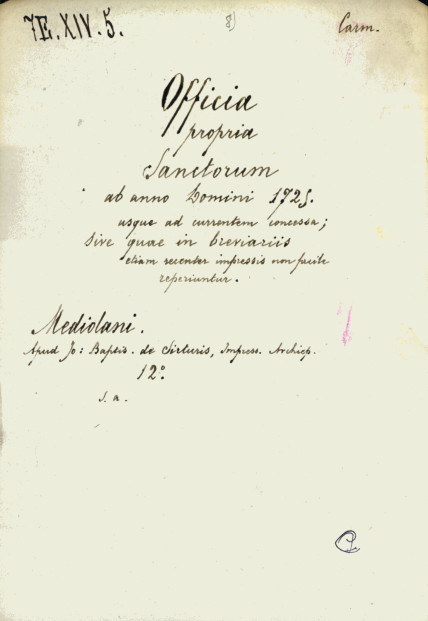 7E.XIV.5.
8)
Carm.
Officia
propria
Sanctorum
ab anno Domini 1725.
usque ad currentem concessa;
Sive quae in breviariis
etiam recenter impressis non facile
reperiuntur.
Mediolani.
Apud Jo: Baptis. de Sirturis, Impress. Archiep.
12º.
s. a.